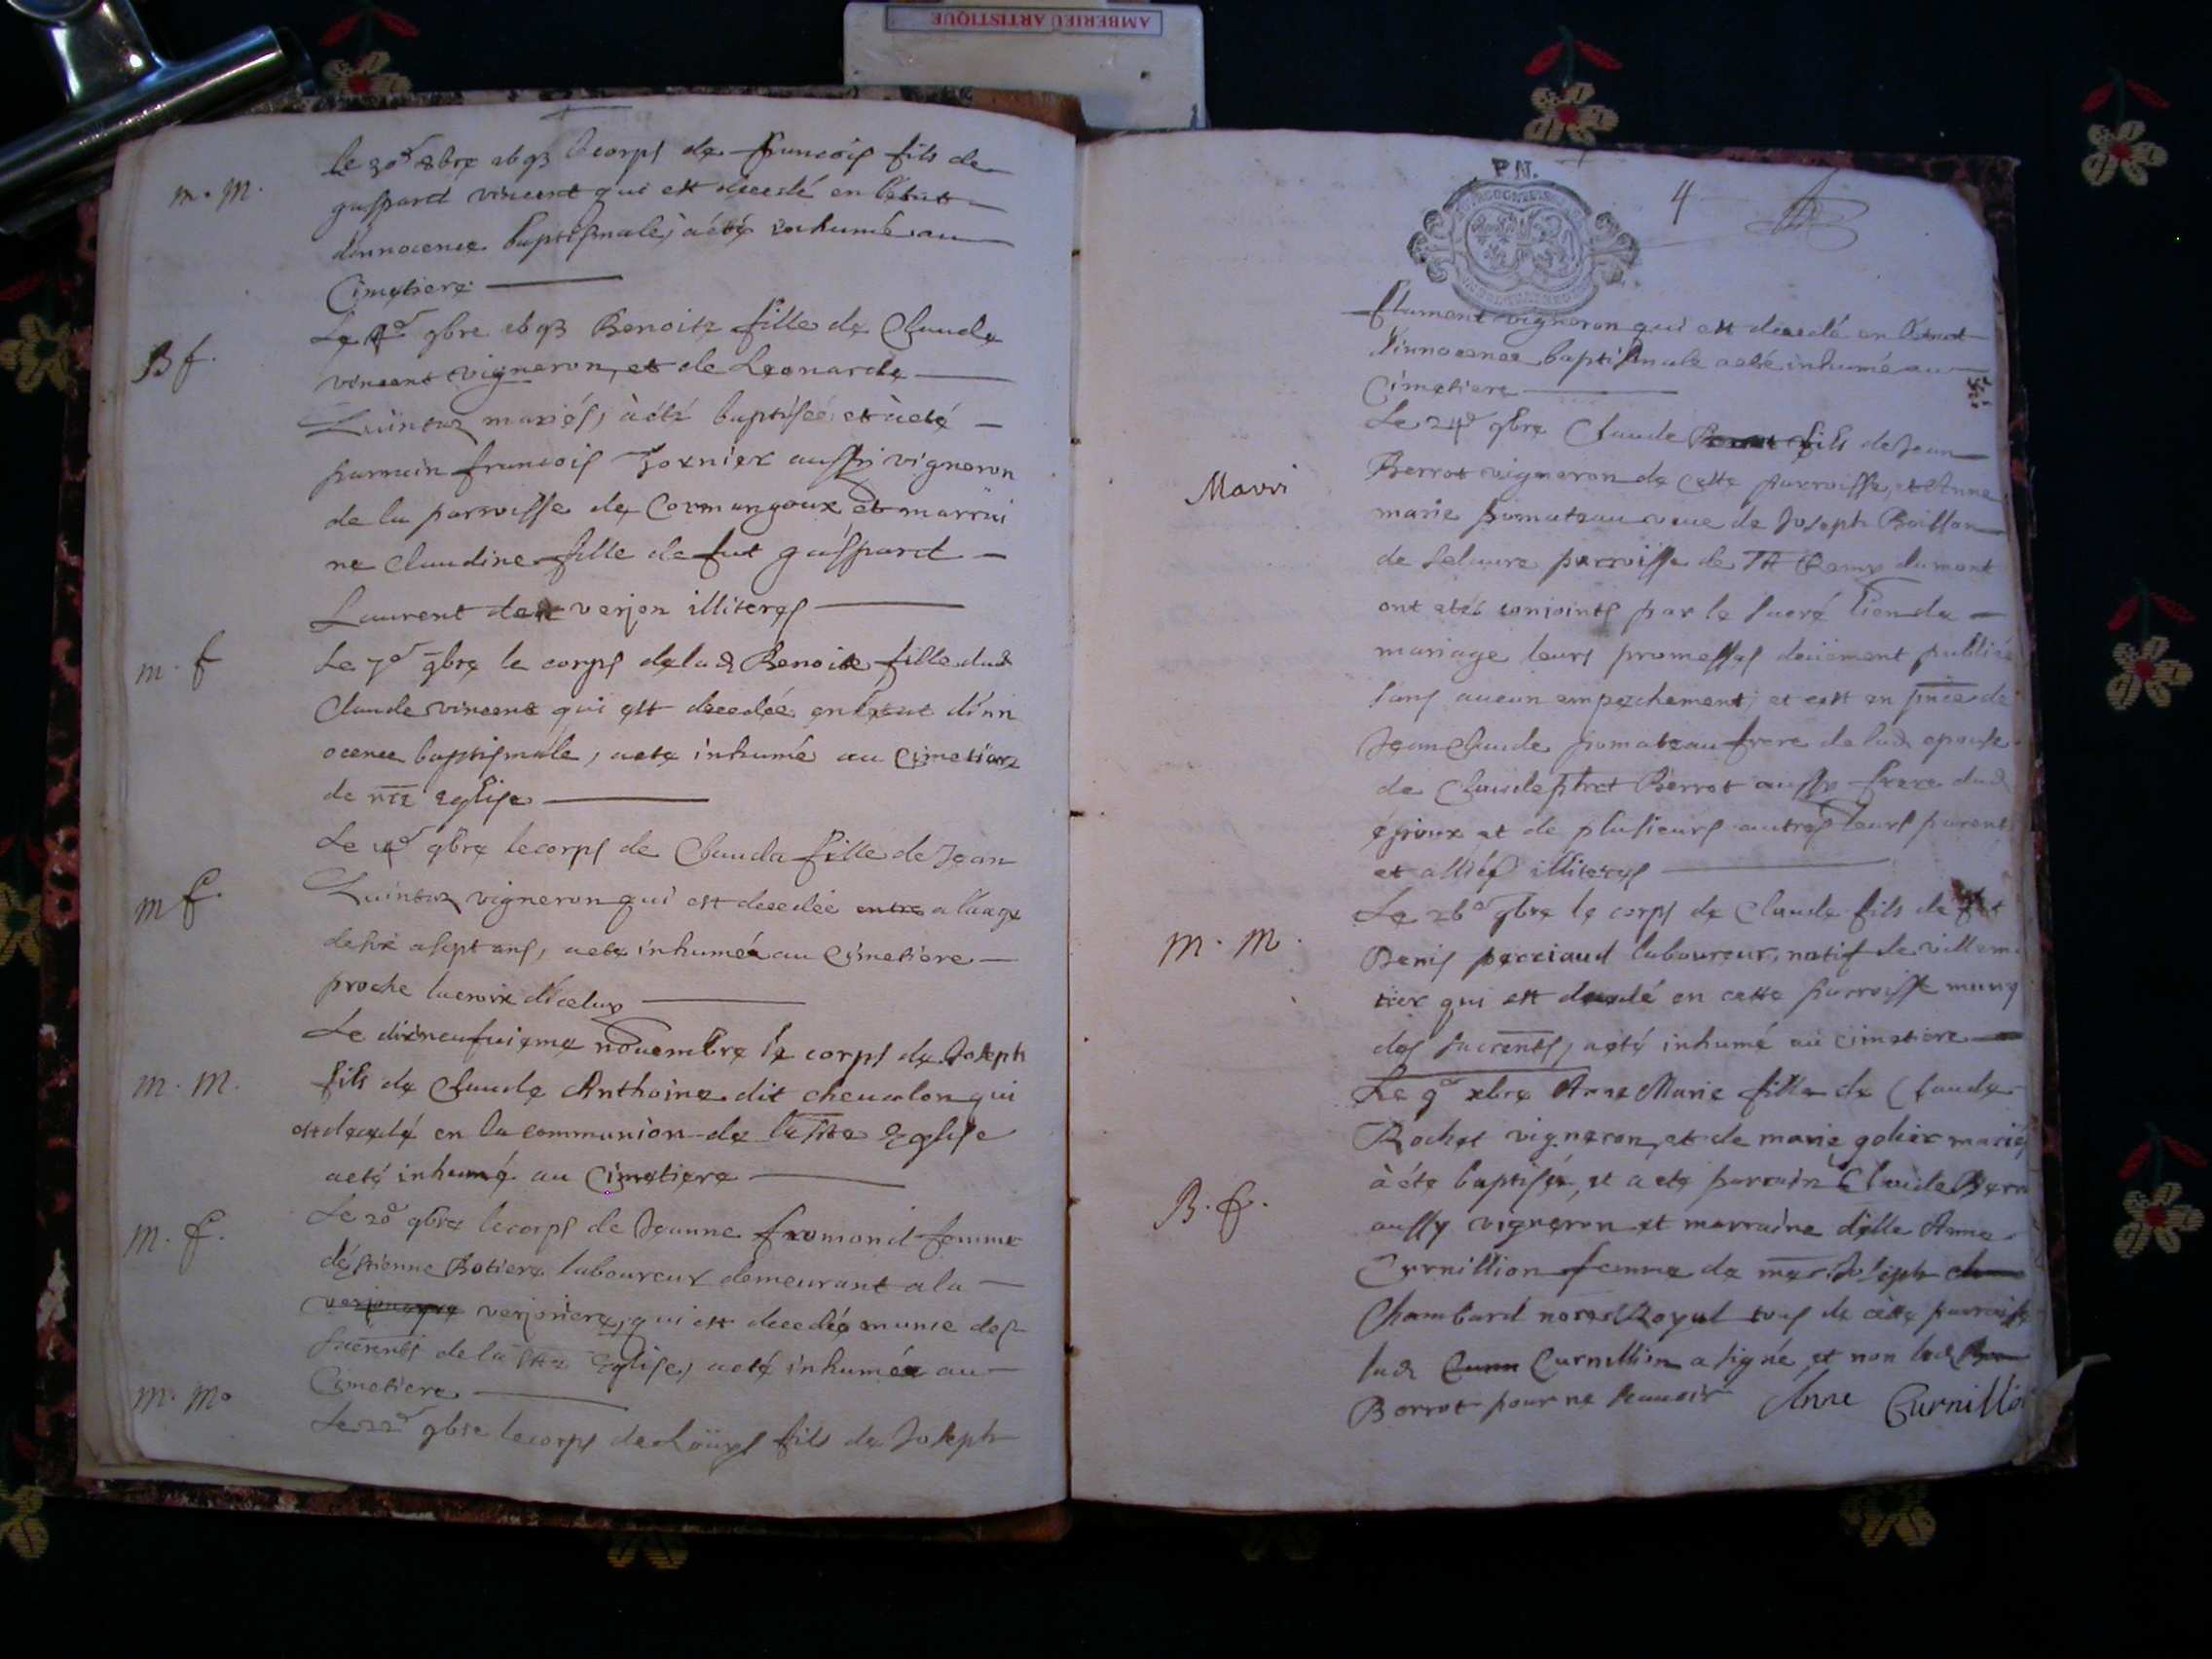 AMBERIEU ARTISTIQUE
m. M.
le 30e 8bre 1693 le corps de francois fils de
gaspard vincent qui est decedé en l'etat
dinnocence baptismale, à été inhumé au
Cimetiere
B f.
Le 4e 9bre 1693 Benoite fille de Claude
vincent vigneron, et de Leonarde
Quintaz mariés, à été baptisée et à eté
parrain francois Fornier aussy vigneron
de la parroisse de Cormangoux et marrai
ne Claudine fille de fut gaspard
Laurent de verjon illiteres
m. f
Le 7e 9bre le corps de lad Benoite fille dud
Claude vincent qui est decedée en l'etat d'inn
ocence baptismale, a eté inhumé au Cimetiere
de nre Eglise
m f.
Le 9bre le corps de Clauda fille de Jean
Quintaz vigneron qui est decedée entre a l'aage
de six a sept ans, a eté inhumée au Cimetiere
proche la croix d'iceluy
m. M.
Le dixneufuieme nouembre le corps de Joseph
fils de Claude Anthoine dit cheualon qui
est decedé en la communion de la Ste Eglise
a eté inhumé au Cimetiere
m. f.
Le 20e 9bre le corps de Jeanne fromond femme
d'estienne Botiere laboureur demeurant a la
verjoniere, qui est decedée munie des
sacrents de la Ste Eglise, a eté inhumée au
Cimetiere
m. M.
Le 22e 9bre le corps de Loüys fils de Joseph
P.N.
4
flament vigneron qui est decedé en l'etat
d'innocence baptismale a eté inhumé au
Cimetiere
Mari
Le 24e 9bre Claude fils de Jean
Berrot vigneron de cette parroisse, et Anne
marie pomateau veue de Joseph Boillon
de Selaure parroisse de St Remy du mont
ont etés conjoints par le sacré lien de
mariage leurs promesses deüement publiés
sans aucun empechement, et cest en pnce de
Jean Claude pomateau frere de lad epouse
de Claude phret Berrot aussy frere dud
epoux et de plusieurs autres leurs parents
et alliés illiteres
m. M.
Le 26e 9bre le corps de Claude fils de fut
Denis perriaud laboureur, natif de villemo
tier qui est decedé en cette parroisse muny
des sacrents, a eté inhumé au cimetiere
B. f.
Le 9e xbre Anne Marie fille de Claude
Rochet vigneron, et de marie gohier mariés
à éte baptisée, et a eté parrain Claude Berro
aussy vigneron et marraine dlle Anne
Curnillion femme de me Joseph
Chambard nore Royal tous de cette parroisse
lad Curnillion a signé, et non led
Borrot pour ne scauoir Anne Curnillio